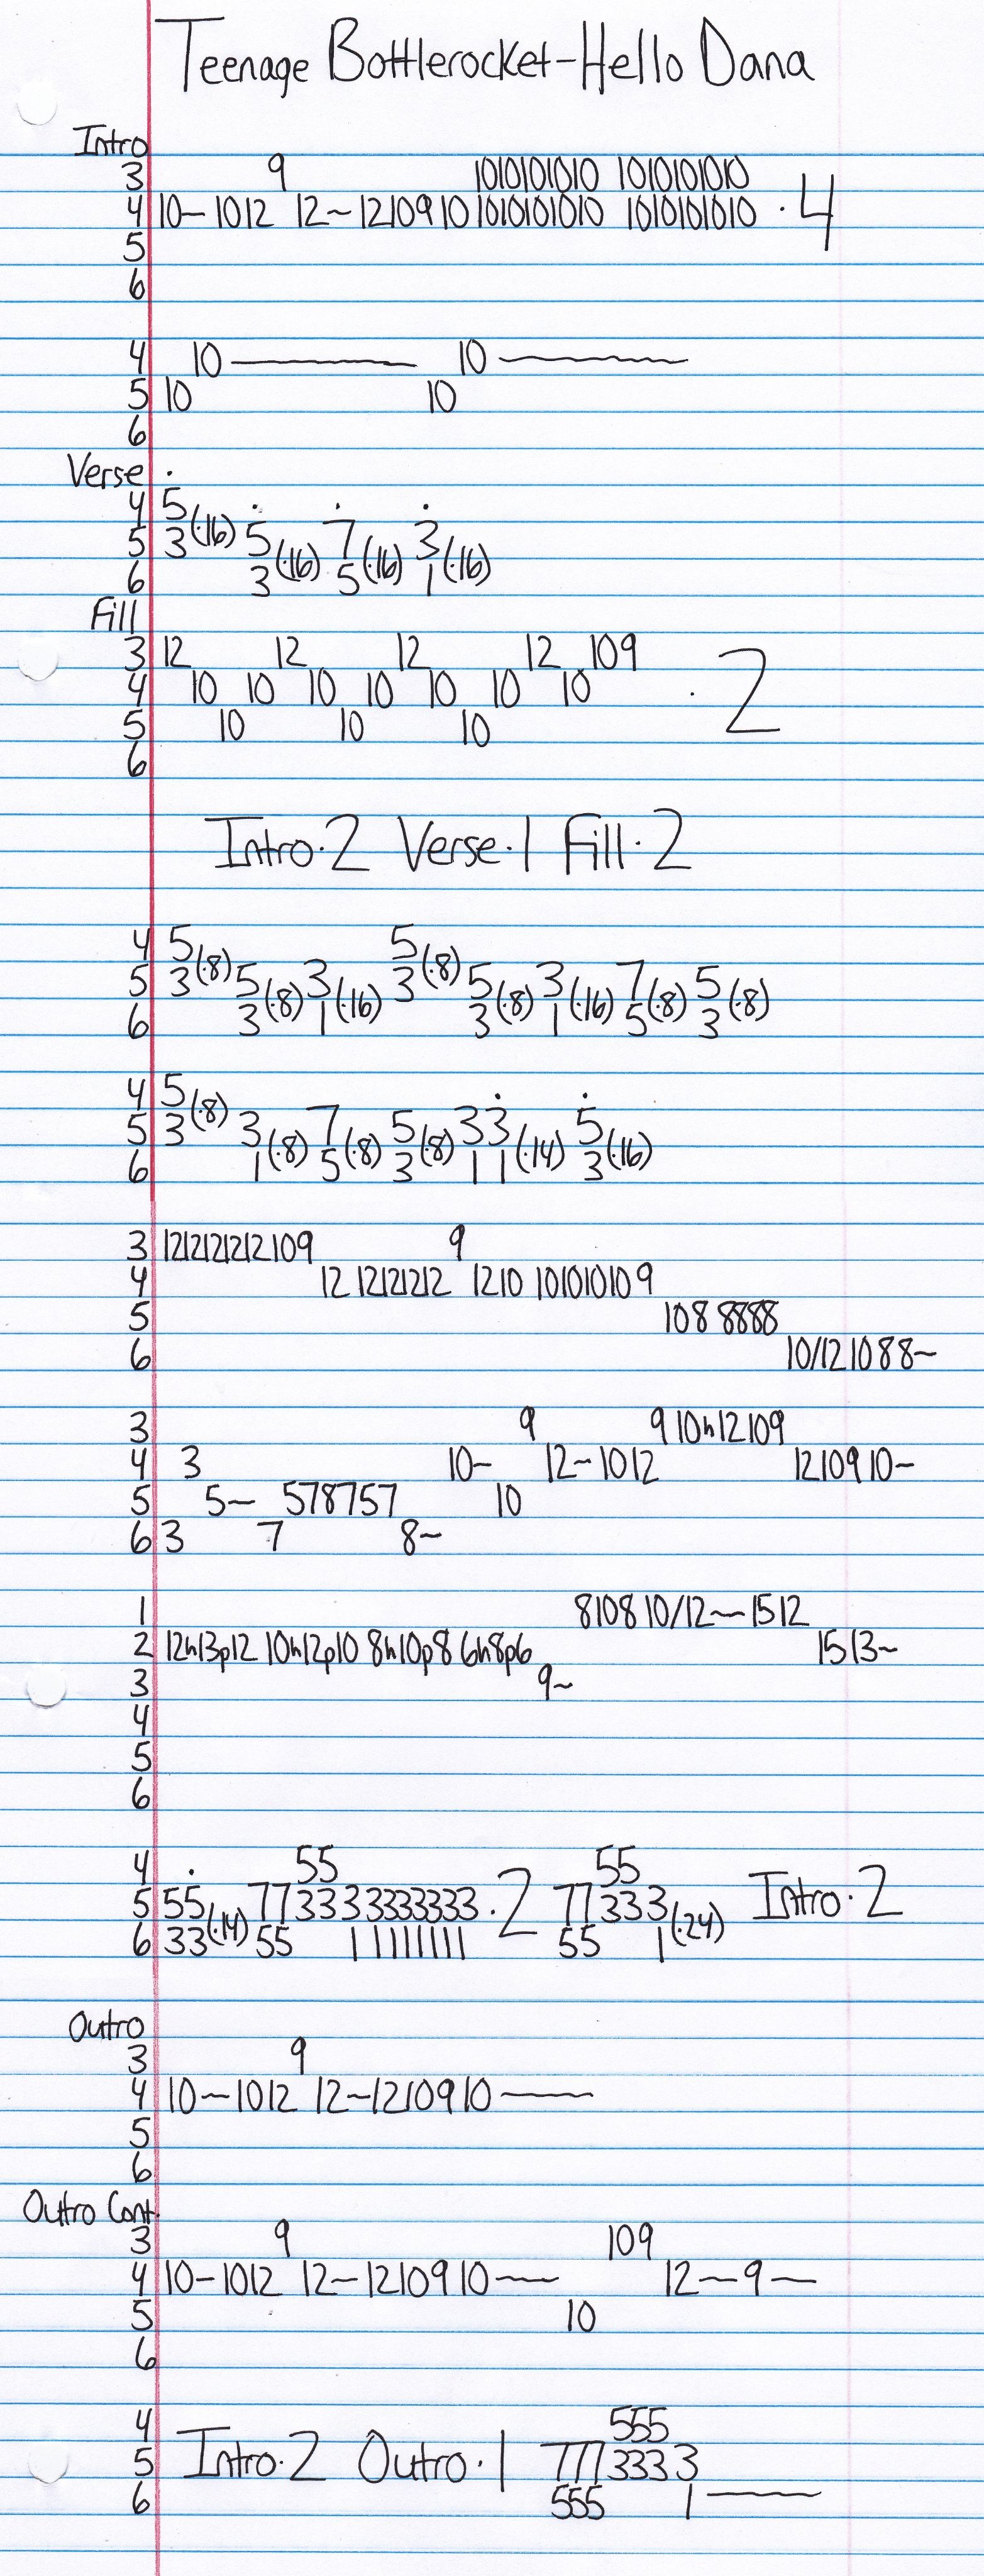 Teenage Bottlerocket-Hello Dana
Intro
3 9 1010101010 1010101010
4 10~ 1012 12~ 1210910 1010101010 1010101010 ·4
5
6
4 10~ 10~
5 10 10
6
Verse ·
4 5
5 3(·16) 5 7 3
6 3(·16) 5(·16) 1(·16)
Fill
3 12 12 12 12 109
4 10 10 10 10 10 10 10 ·2
5 10 10 10
6
Intro·2 Verse·1 Fill·2
4 5 5
5 3(·8) 5 3 3(·8) 5 3 7 5
6 3(·8) 1(·16) 3(·8) 1(·16) 5(·8) 3(·8)
4 5
5 3(·8) 3 7 5 3 3 5
6 1(·8) 5(·8) 3(·8) 1 1(·14) 3(·16)
3 1212121212109 9
4 12 12121212 1210 101010109
5 108 8888
6 10/121088~
3 9 9 10h12109
4 3 10~ 12~1012 1210910~
5 5~ 578757 10
6 3 7 8~
1 8108 10/12~1512
2 12h13p12 10h12p10 8h10p8 6h8p6 1513~
3 9~
4
5
6
4 55 55
5 55 77333333333333 ·2 77333 Intro·2
6 33(·14) 55 11111111 55 1(·24)
Outro
3 9
4 10~1012 12~1210910~
5
6
Outro Cont.
3 9 109
4 10~1012 12~1210910~ 12~9~
5 10
6
4 555
5 Intro·2 Outro·1 7773333
6 555 1~